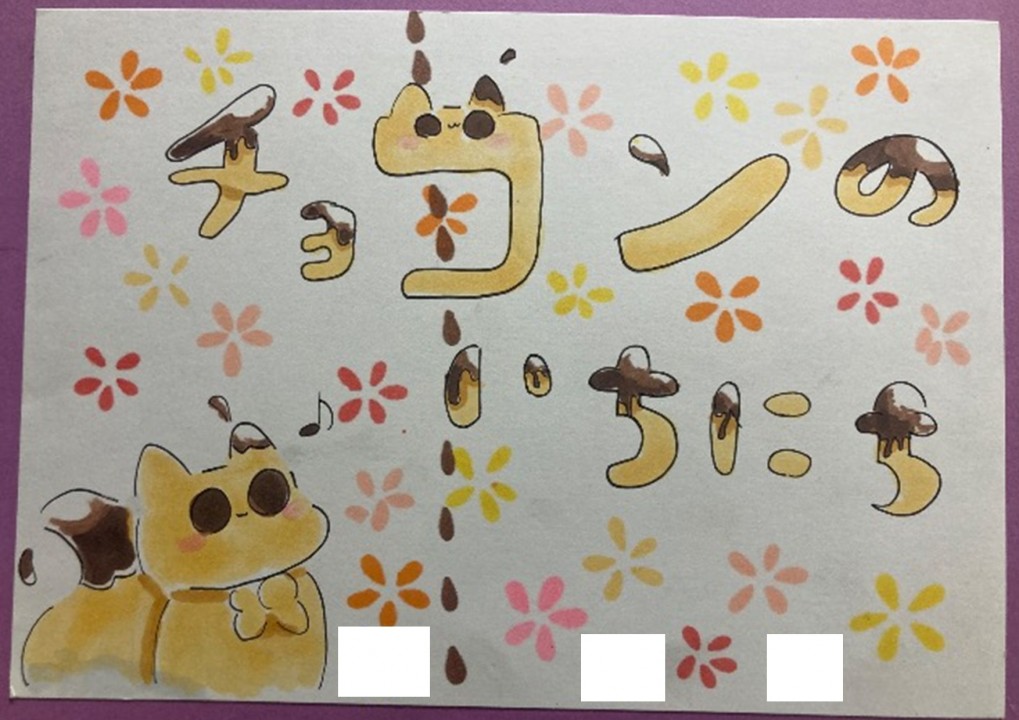 チョコンの
いちにち